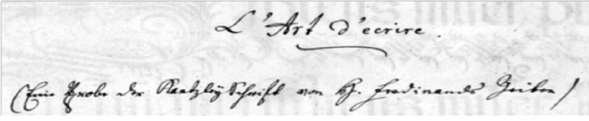 L'Art d'ecrire.
(Eine Probe der Kantzley Schrifft von H. Ferdinands Zeiten)